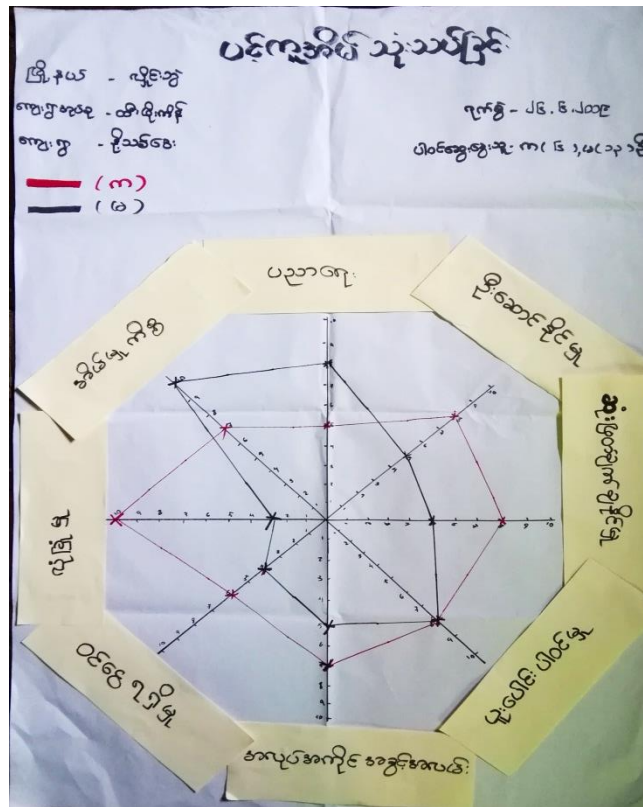 ပင့်ကူအိမ် သုံးသပ်ခြင်း
မြို့နယ် - လှိုင်းဘွဲ
ကျေးရွာအုပ်စု -
ကျေးရွာ -
ရက်စွဲ - ၂၆.၆.၂၀၁၉
ပါဝင်ဆွေးနွေးသူ - က(၆), မ(၁၃)ဦး
(က)
(မ)
ပညာရေး
ဦးဆောင်နိုင်မှု
ဆုံးဖြတ်ချက်ချနိုင်မှု
ပူးပေါင်းပါဝင်မှု
အလုပ်အကိုင် အခွင့်အလမ်း
ဝင်ငွေ ရရှိမှု
လုံခြုံမှု
အိမ်မှု ကိစ္စ